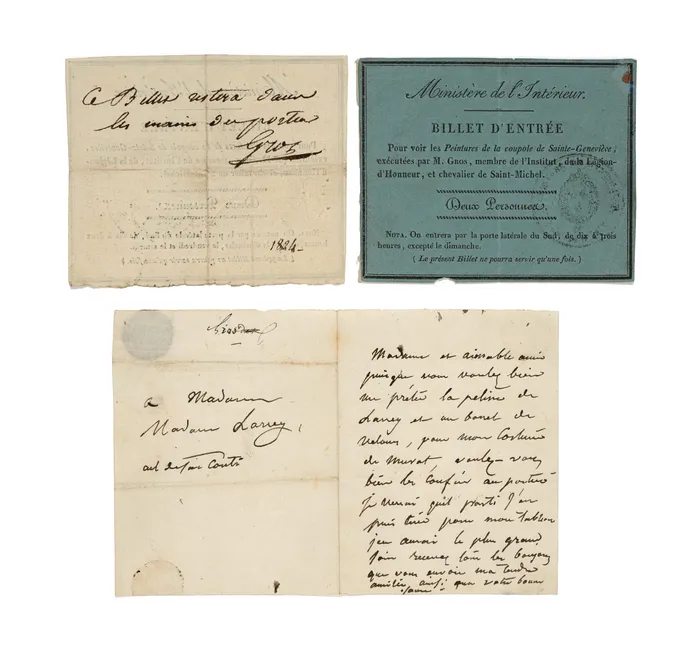 Ce Billet restera dans
les mains du portier
Gros
1824
Ministère de l'Intérieur.
BILLET D'ENTRÉE
Pour voir les Peintures de la coupole de Sainte-Geneviève,
exécutées par M. Gros, membre de l'Institut, de la Légion-
d'Honneur, et chevalier de Saint-Michel.
Deux Personnes.
Nota. On entrera par la porte latérale du Sud, de dix à trois
heures, excepté le dimanche.
( Le présent Billet ne pourra servir qu'une fois. )
a Madame
Madame Larrey,
Madame et aimable amie
puisque vous voulez bien
me prêter la pelisse de
Larrey et un bonet de
velours, pour mon costume
de murat, voulez-vous
bien les confier au porteur
je verrai quel parti j'en
puis tirer pour mon tableau
jen aurai le plus grand
soin recevez tous les
que vous envoie ma tendre
amitié ainsi qua votre bonne